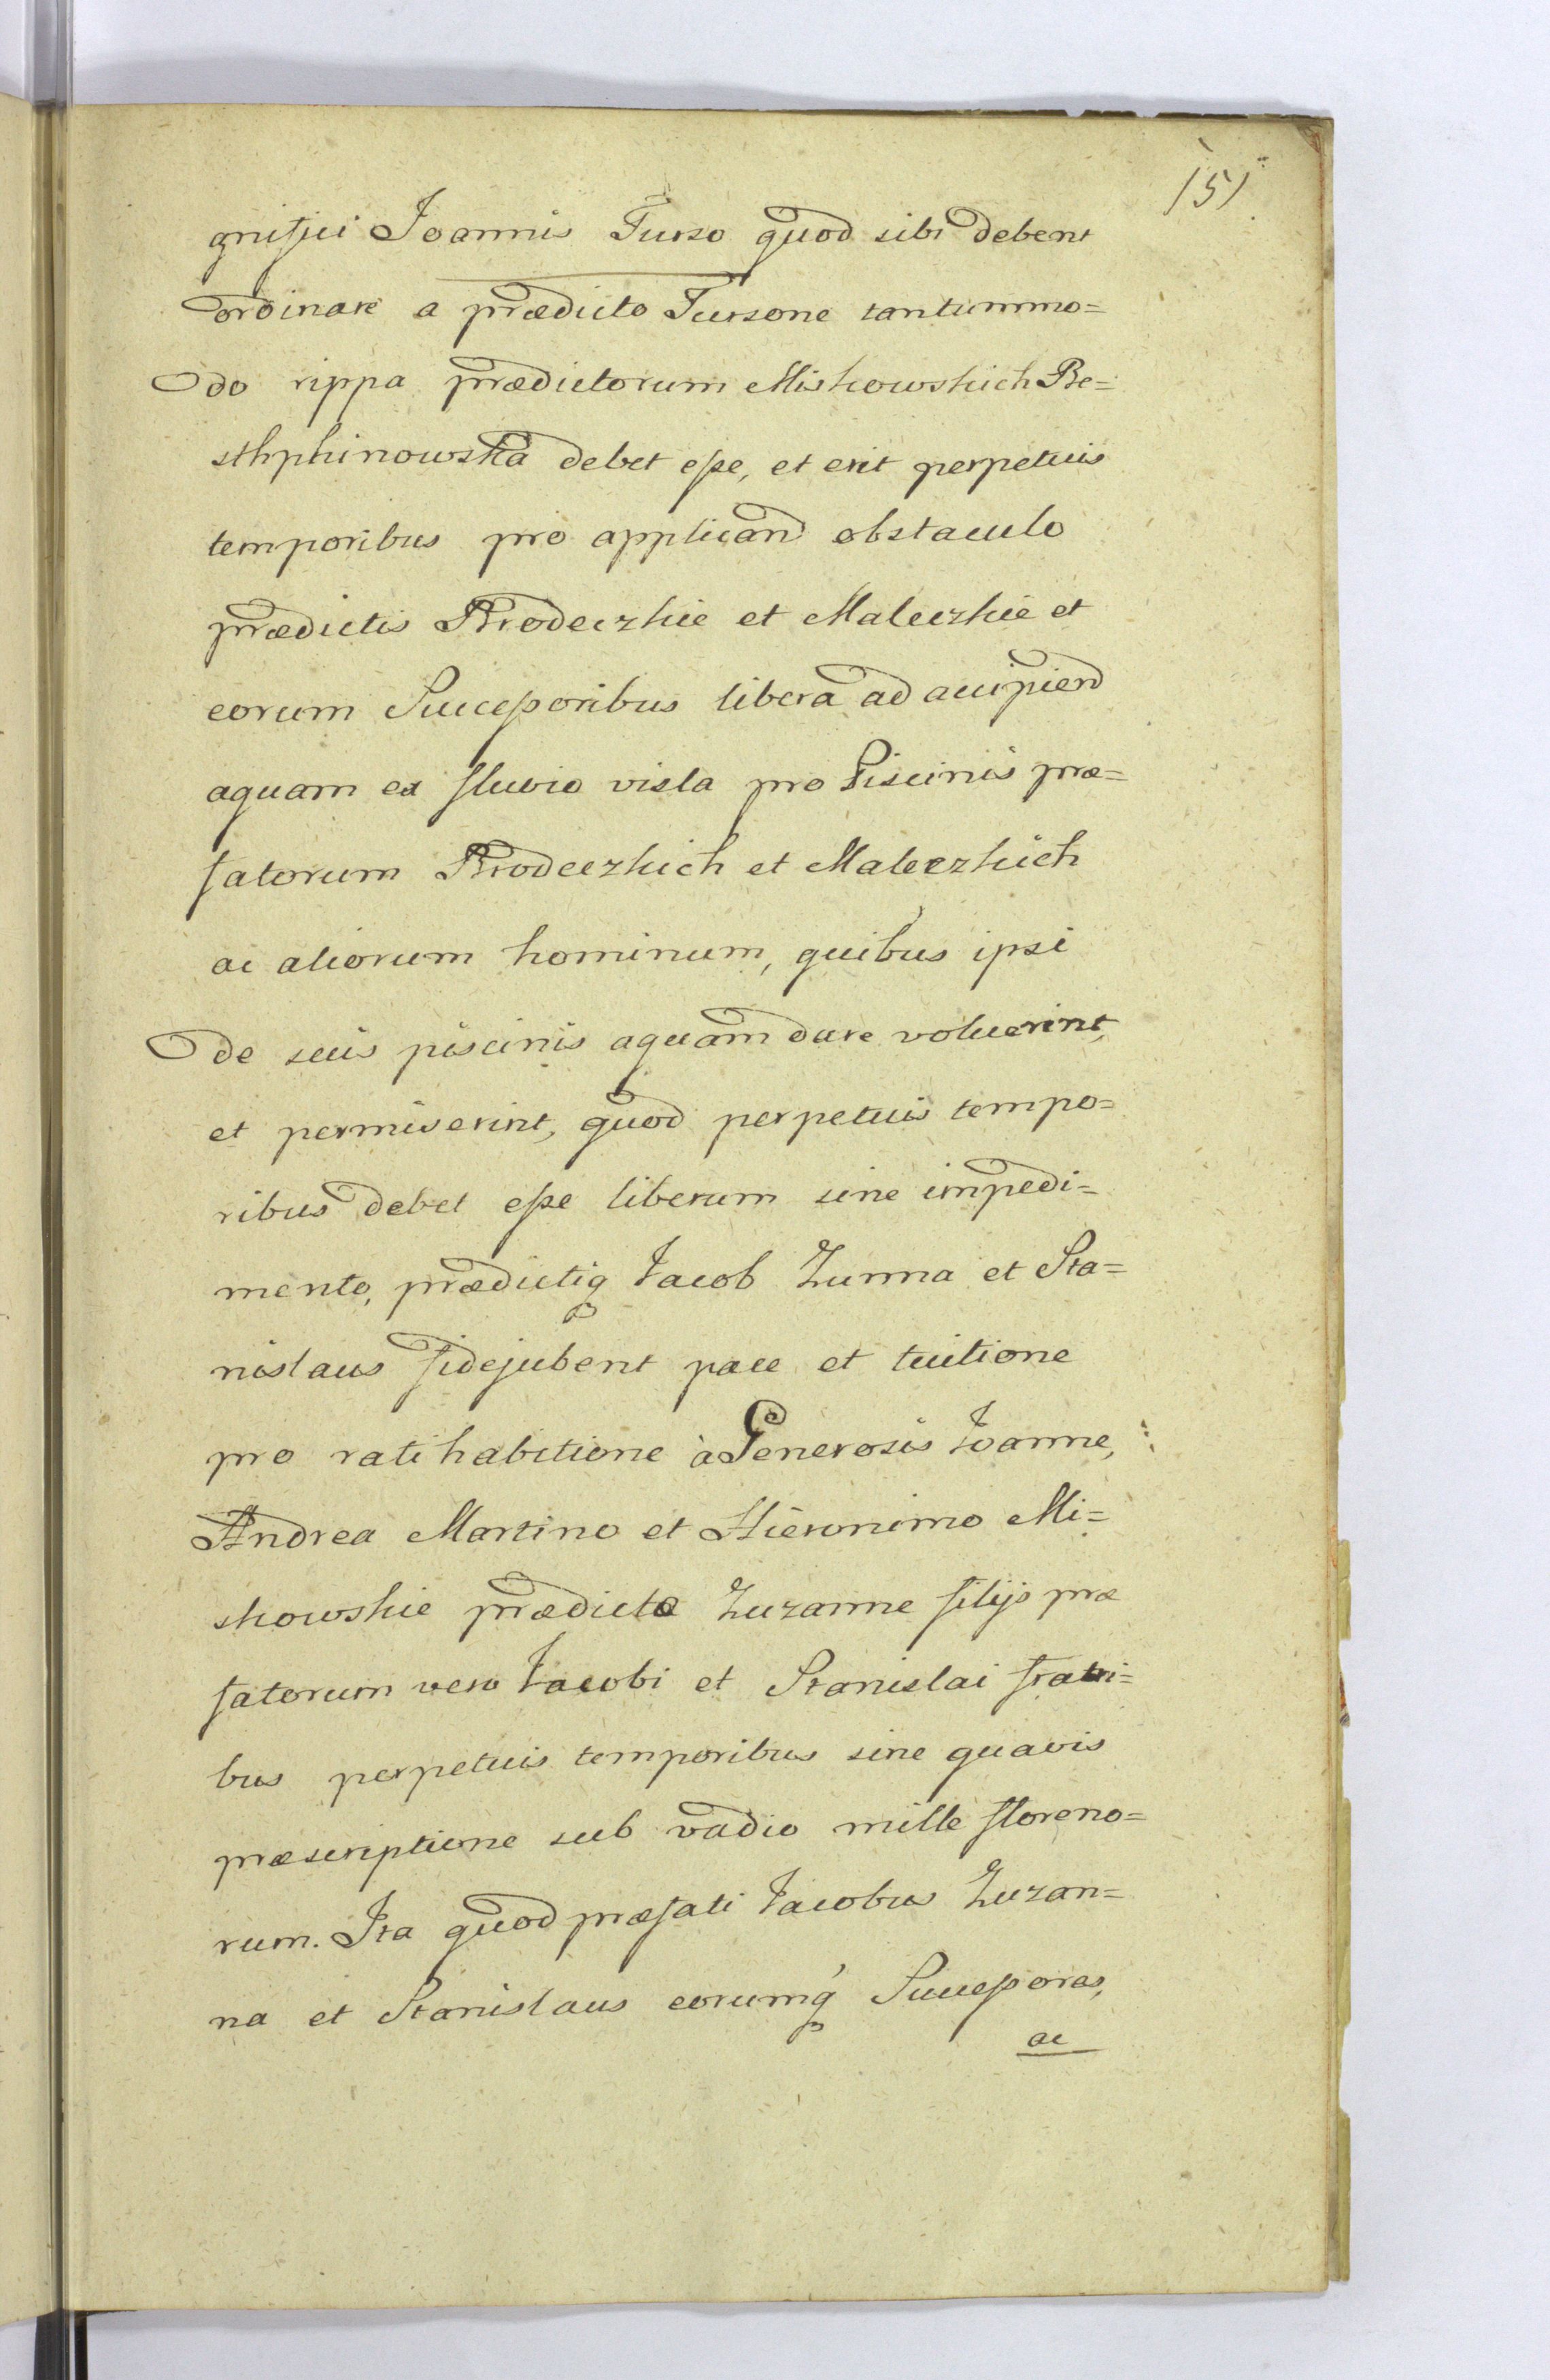 151.
gnifici Joannis Turso quod sibi debent
ordinare a prædicto Tursone tantummo=
do rippa prædictorum Miskowskich Be=
sthphinowska debet esse, et erit perpetuis
temporibus pro applicand obstaculo
prædictis Brodeczkie et Maleczkie et
eorum Successoribus libera ad accipiend
aquam ex fluvio visla pro Piscinis præ=
fatorum Brodeczkich et Maleczkich
ac aliorum hominum, quibus ipsi
de suis piscinis aquam dare voluerint,
et permiserint, quod perpetuis tempo=
ribus debet esse liberum sine impedi=
mento, prædictiq Jacob Zunna et Sta=
nislaus fidejubent pace et tuitione
pro ratihabitione à Generosis Joanne,
Andrea Martino et Hieronimo Mi=
skowskie prædicta Zuzanne filijs præ
fatorum vero Jacobi et Stanislai fratri=
bus perpetuis temporibus sine quavis
præscriptione sub vadio mille floreno=
rum. Ita quod præfati Jacobus Zuzan=
na et Stanislaus eorumq Successores,
ac